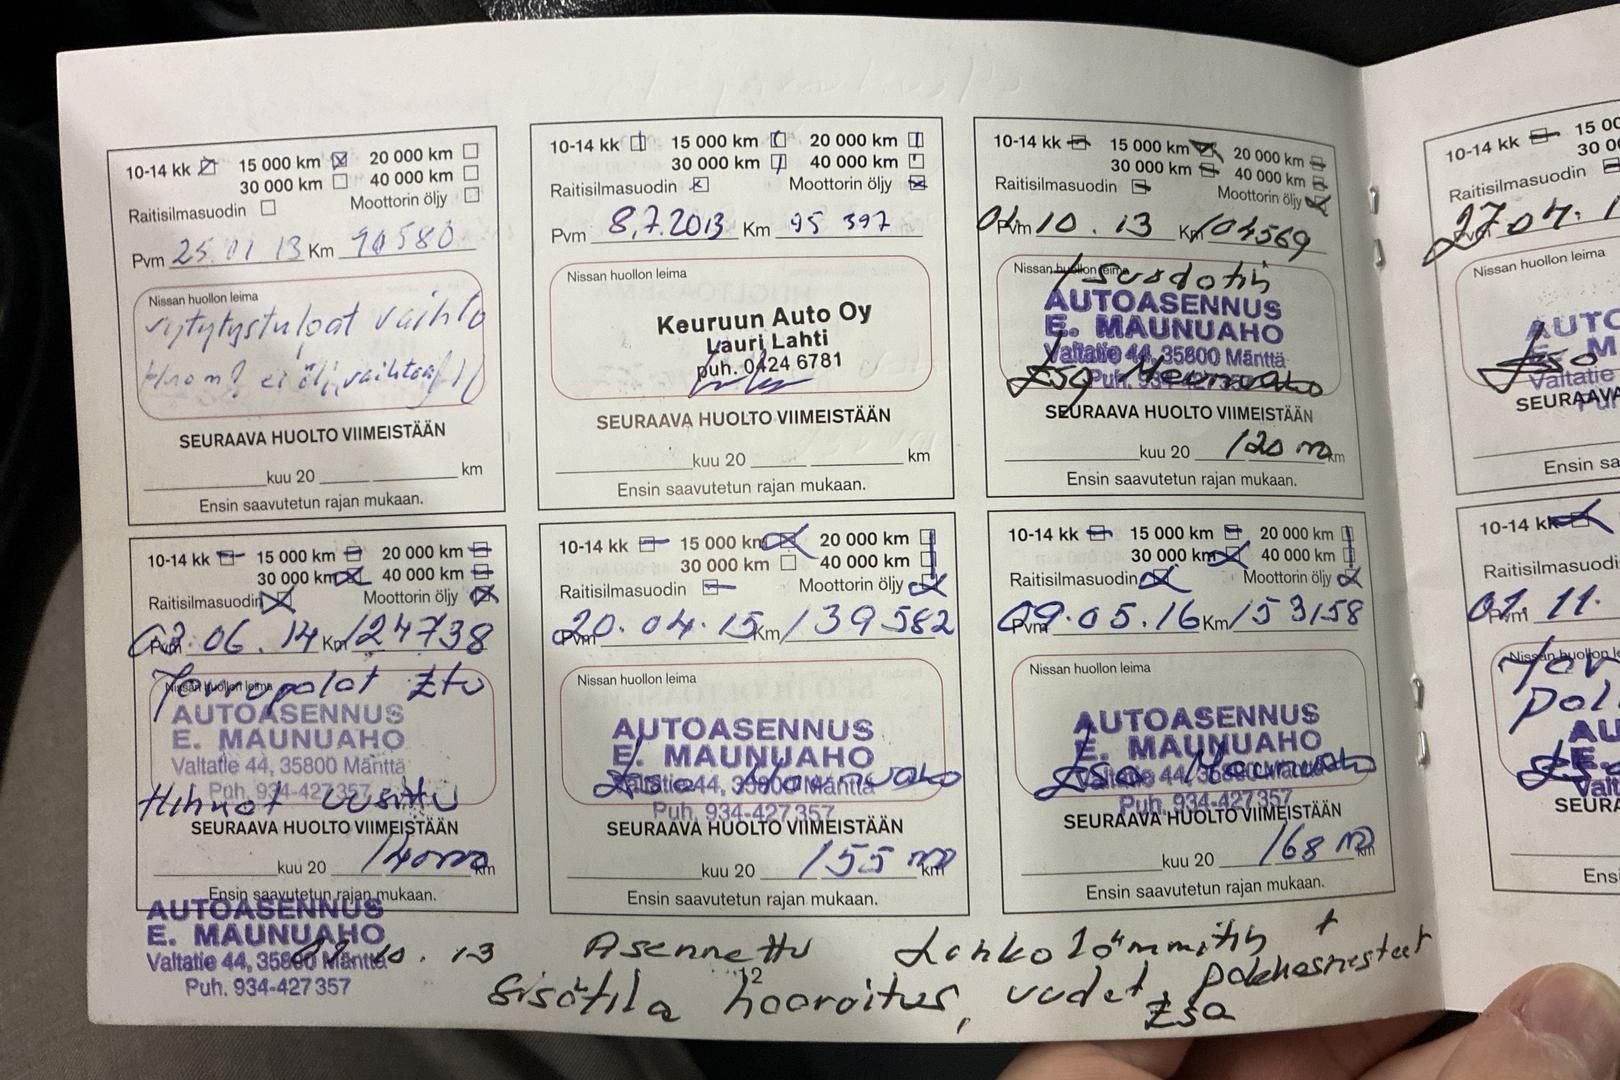 10-14 kk 15 000 km 20 000 km
30 000 km 40 000 km
Raitisilmasuodin Moottorin öljy
Pvm 25.01 13 Km 90580
Nissan huollon leima
sytytystulpat vaihto
Huom? ei ölj. vaihtoa!
SEURAAVA HUOLTO VIIMEISTÄÄN
kuu 20 km
Ensin saavutetun rajan mukaan.
10-14 kk 15 000 km 20 000 km
30 000 km 40 000 km
Raitisilmasuodin Moottorin öljy
Pvm 8.7.2013 Km 95 397
Nissan huollon leima
Keuruun Auto Oy
Lauri Lahti
puh. 0424 6781
SEURAAVA HUOLTO VIIMEISTÄÄN
kuu 20 km
Ensin saavutetun rajan mukaan.
10-14 kk 15 000 km 20 000 km
30 000 km 40 000 km
Raitisilmasuodin Moottorin öljy
Pvm 10.13 Km 104569
Nissan huollon leima
AUTOASENNUS
E. MAUNUAHO
Valtatie 44, 35800 Mänttä
Puh. 934-427357
Esa Maunuaho
SEURAAVA HUOLTO VIIMEISTÄÄN
kuu 20 120 km
Ensin saavutetun rajan mukaan.
10-14 kk 15 00
30 0
Raitisilmasuodin
27 04.1
Nissan huollon leima
AUTO
E. M
Esa
Valtatie
Pu
SEURAAVA
Ensin sa
10-14 kk 15 000 km 20 000 km
30 000 km 40 000 km
Raitisilmasuodin Moottorin öljy
Pvm 02.06.14 Km 124738
Nissan huollon leima
AUTOASENNUS
E. MAUNUAHO
Valtatie 44, 35800 Mänttä
Puh. 934-427357
Hihnat uusittu
SEURAAVA HUOLTO VIIMEISTÄÄN
kuu 20 140 km
Ensin saavutetun rajan mukaan.
10-14 kk 15 000 km 20 000 km
30 000 km 40 000 km
Raitisilmasuodin Moottorin öljy
Pvm 20.04.15 Km 139582
Nissan huollon leima
AUTOASENNUS
E. MAUNUAHO
Esa Maunuaho
Valtatie 44, 35800 Mänttä
Puh. 934-427357
SEURAAVA HUOLTO VIIMEISTÄÄN
kuu 20 155 km
Ensin saavutetun rajan mukaan.
10-14 kk 15 000 km 20 000 km
30 000 km 40 000 km
Raitisilmasuodin Moottorin öljy
Pvm 09.05.16 Km 153158
Nissan huollon leima
AUTOASENNUS
E. MAUNUAHO
Esa Maunuaho
Valtatie 44, 35800 Mänttä
Puh. 934-427357
SEURAAVA HUOLTO VIIMEISTÄÄN
kuu 20 168 km
Ensin saavutetun rajan mukaan.
10-14 kk
Raitisilmasuodi
Pvm 01.11.
Nissan huollon le
AU
E.
Valt
SEURA
Ensi
AUTOASENNUS
E. MAUNUAHO
Valtatie 44, 35800 Mänttä
Puh. 934-427357
10.13 Asennettu Lohkolämmitin +
Sisätila haaroitus,
Esa